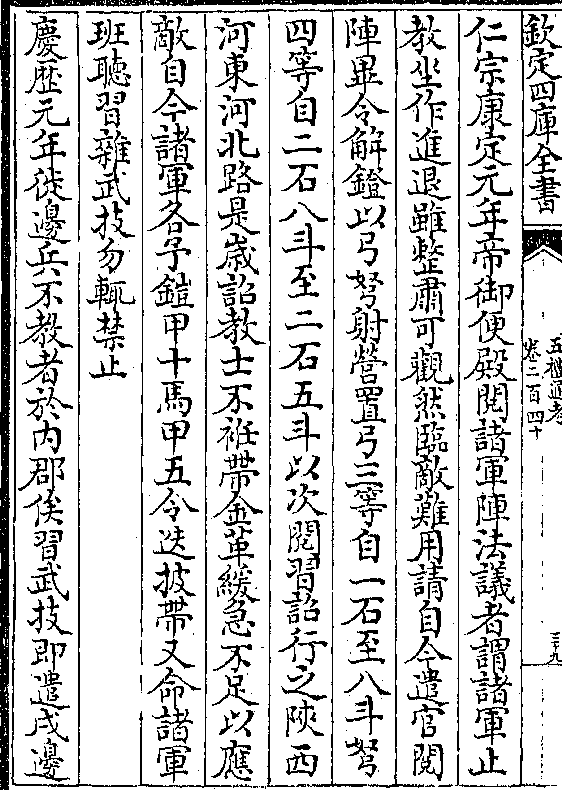 欽定四庫全書
五禮通考
卷二百四十
三十九
仁宗康定元年帝御便殿閱諸軍陣法議者謂諸軍止
教坐作進退雖整肅可觀然臨敵難用請自今遣官閱
陣畢令解鐙以弓弩射營置弓三等自一石至八斗弩
四等自二石八斗至二石五斗以次閱習詔行之陜西
河東河北路是歳詔教士不袵帶金革緩急不足以應
敵自今諸軍各予鎧甲十馬甲五令迭披帶又命諸軍
班聽習雜武技勿輒禁止
慶歴元年徙邊兵不教者於內郡俟習武技即遣戍邊